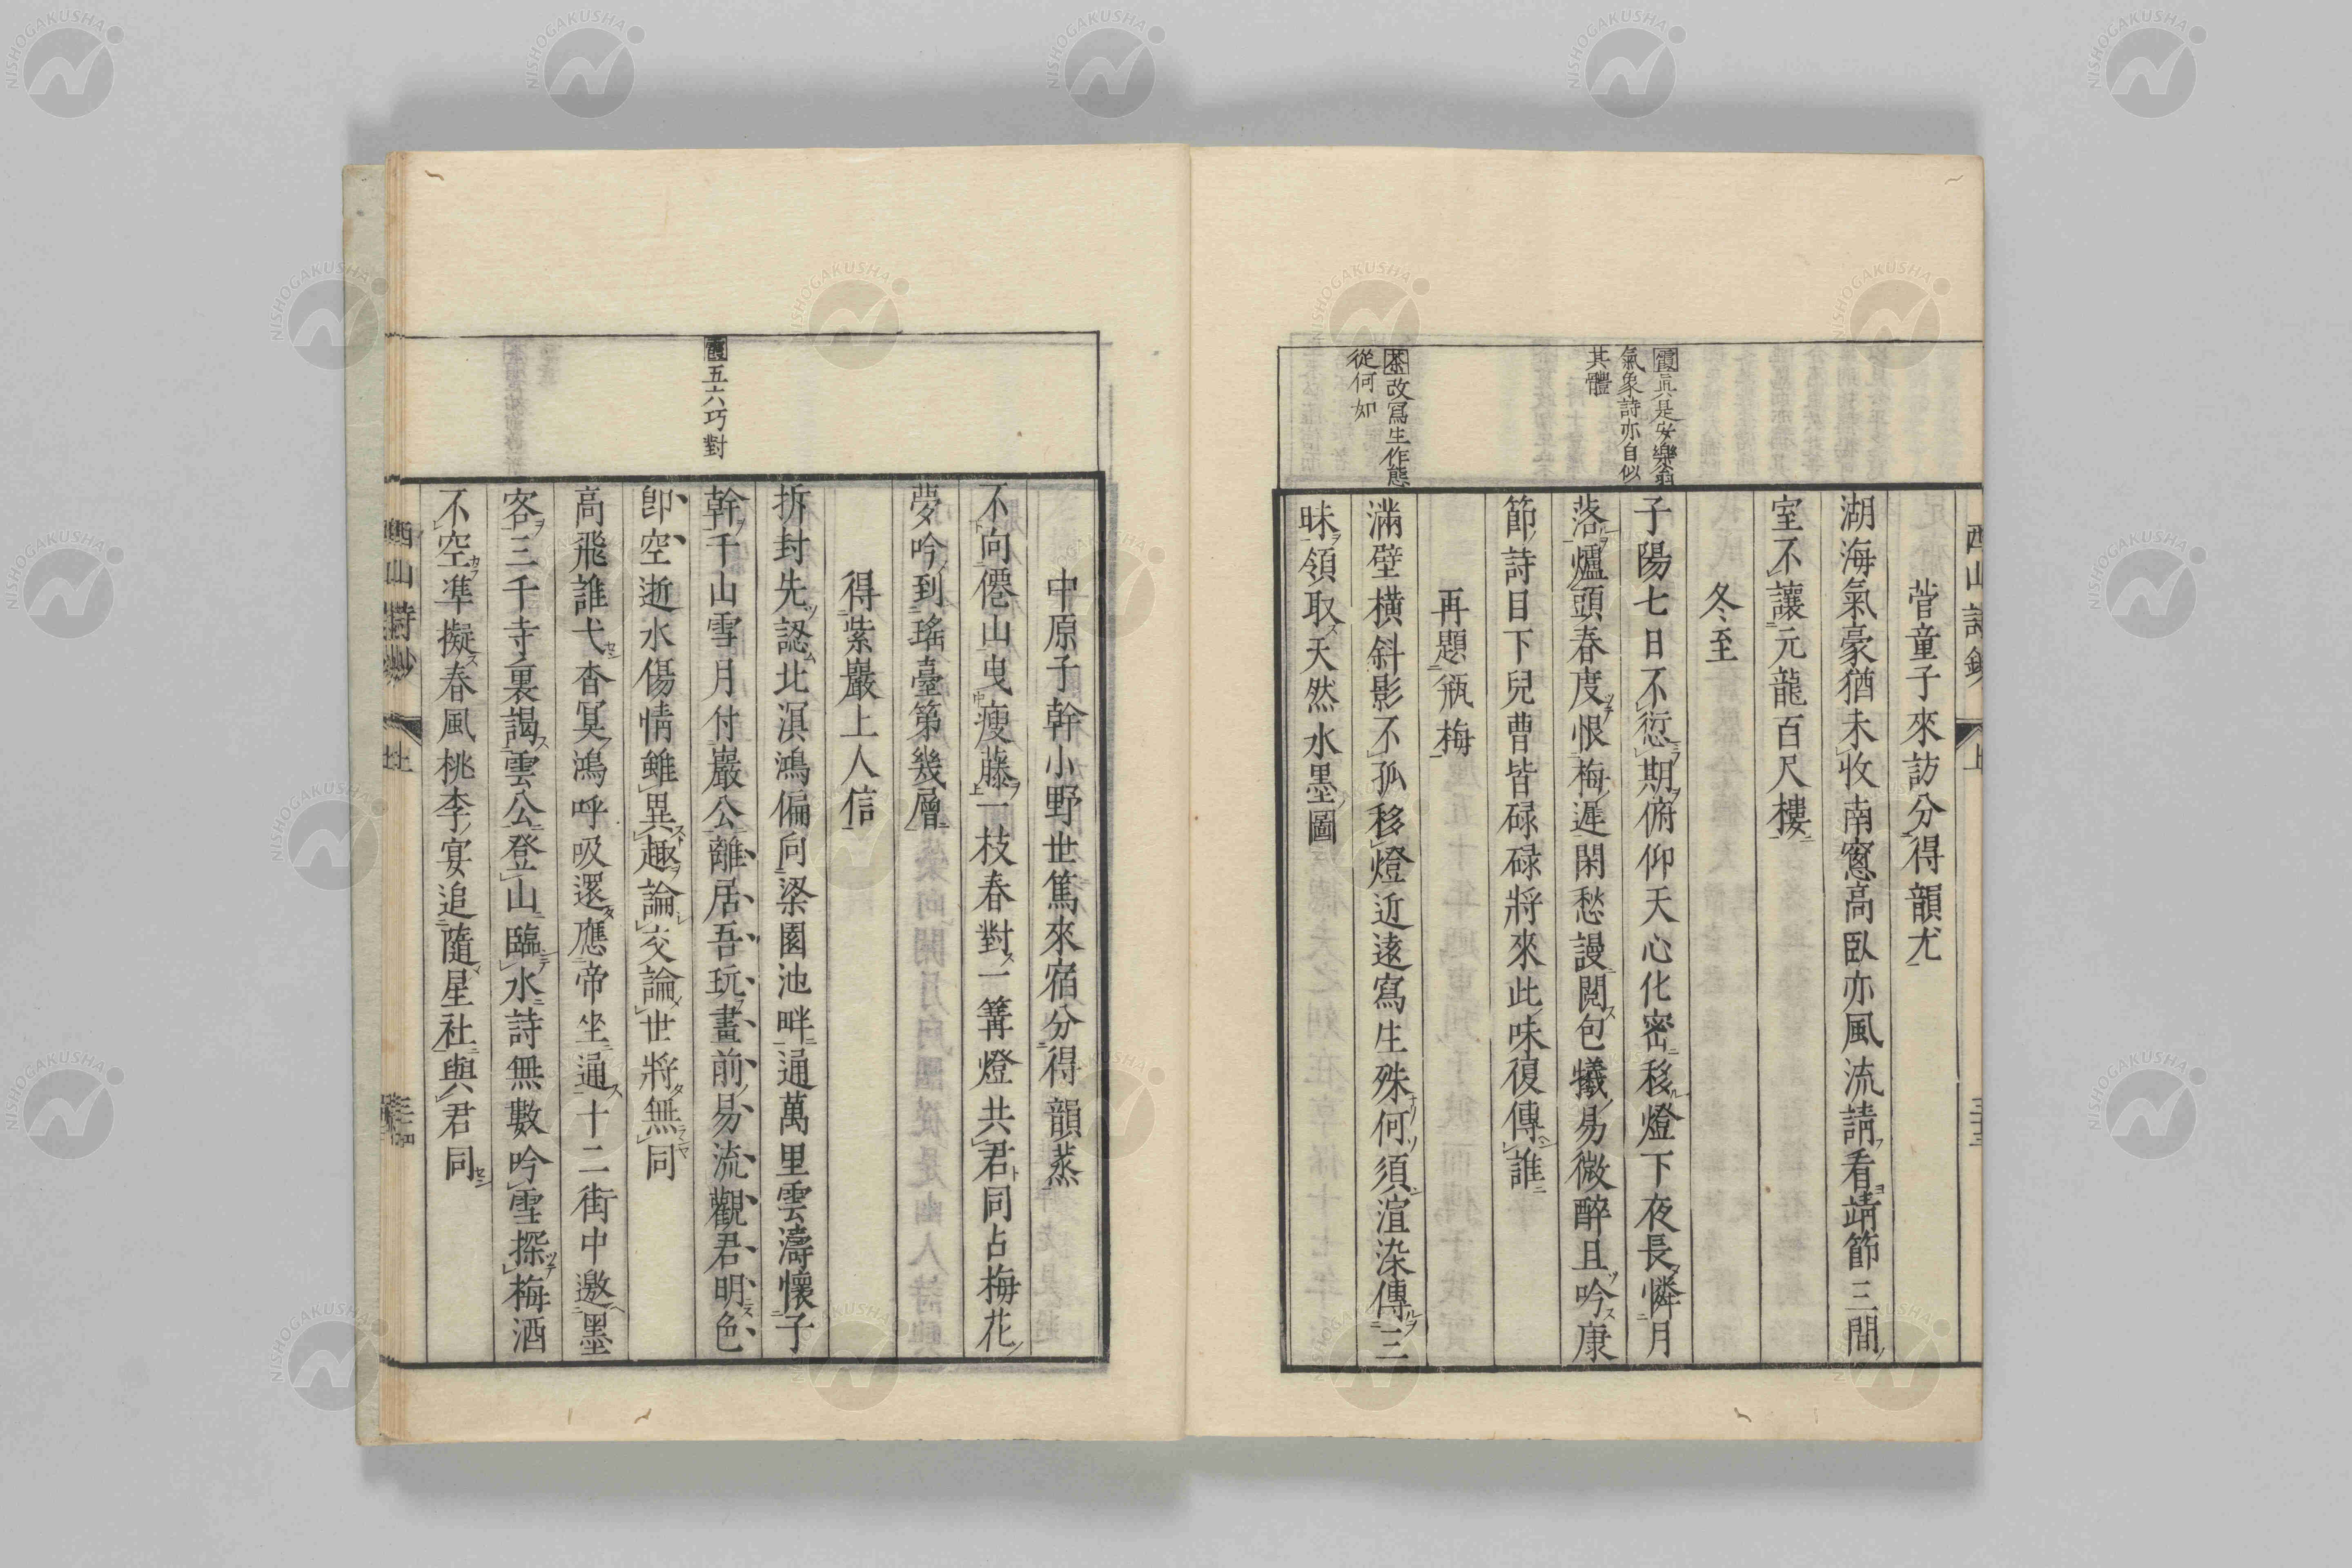 西山詩鈔
上
三十三
菅童子來訪分得韻尤
湖海氣豪猶未收南窻高臥亦風流請看靖節三間
室不讓元龍百尺樓
冬至
子陽七日不愆期俯仰天心化密移燈下夜長憐月
落爐頭春度恨梅遲閑愁謾閱包犧易微醉且吟康
節詩目下兒曹皆碌碌將來此味復傳誰
再題瓶梅
滿壁橫斜影不孤移燈近遠寫生殊何須渲染傳三
昧領取天然水墨圖
霞眞是安樂翁
氣象詩亦自似
其體
茶改寫生作態
從何如
中原子幹小野世篤來宿分得韻蒸
不向僊山曳瘦藤一枝春對一篝燈共君同占梅花
夢吟到瑤臺第幾層
得紫巖上人信
拆封先認北溟鴻偏向梁園池畔通萬里雲濤懷子
幹千山雪月付巖公離居吾玩畫前易流觀君明色
卽空逝水傷情雖異趣論交論世將無同
高飛誰弋杳冥鴻呼吸還應帝坐通十二街中邀墨
客三千寺裏謁雲公登山臨水詩無數吟雪探梅酒
不空準擬春風桃李宴追隨星社與君同
霞五六巧對
西山詩鈔
上